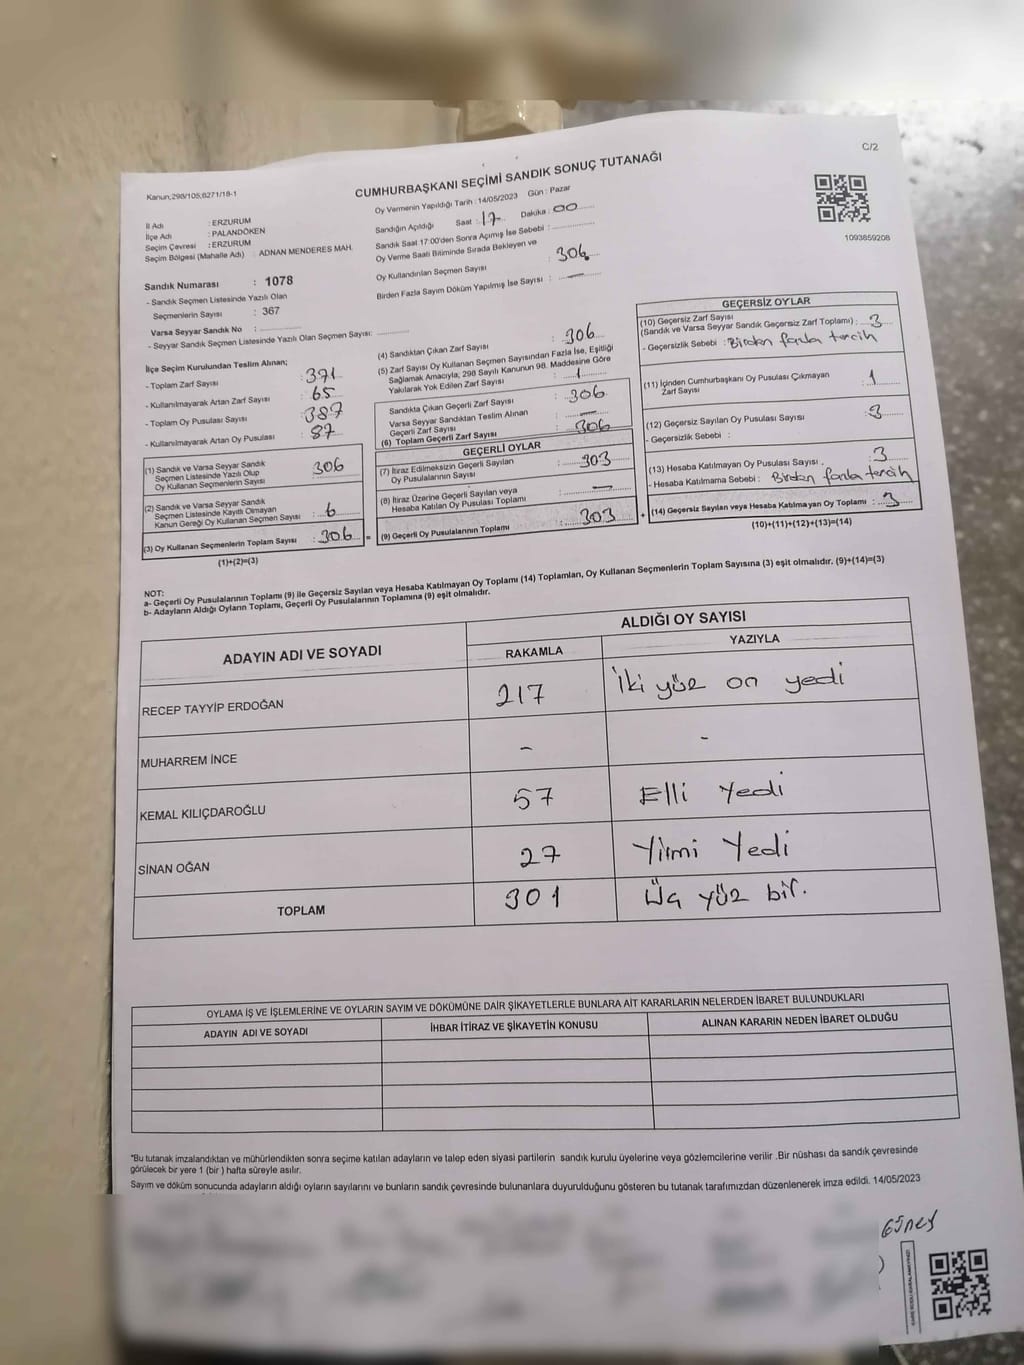 C/2
Kanun;298/105,6271/18-1
CUMHURBAŞKANI SEÇİMİ SANDIK SONUÇ TUTANAĞI
Oy Vermenin Yapıldığı Tarih : 14/05/2023 Gün : Pazar
1093859208
İl Adı : ERZURUM
İlçe Adı : PALANDÖKEN
Seçim Çevresi : ERZURUM
Seçim Bölgesi (Mahalle Adı) : ADNAN MENDERES MAH.
Sandığın Açıldığı Saat : 17 Dakika : 00
Sandık Saat 17:00'den Sonra Açımış İse Sebebi :
Oy Verme Saati Bitiminde Sırada Bekleyen ve
Oy Kullandırılan Seçmen Sayısı : 306
Birden Fazla Sayım Döküm Yapılmış İse Sayısı : —
Sandık Numarası : 1078
- Sandık Seçmen Listesinde Yazılı Olan
Seçmenlerin Sayısı : 367
Varsa Seyyar Sandık No :
- Seyyar Sandık Seçmen Listesinde Yazılı Olan Seçmen Sayısı:
İlçe Seçim Kurulundan Teslim Alınan;
- Toplam Zarf Sayısı : 371
- Kullanılmayarak Artan Zarf Sayısı : 65
- Toplam Oy Pusulası Sayısı : 387
- Kullanılmayarak Artan Oy Pusulası : 87
(1) Sandık ve Varsa Seyyar Sandık
Seçmen Listesinde Yazılı Olup
Oy Kullanan Seçmenlerin Sayısı : 306
(2) Sandık ve Varsa Seyyar Sandık
Seçmen Listesinde Kayıtlı Olmayan
Kanun Gereği Oy Kullanan Seçmen Sayısı : 6
(3) Oy Kullanan Seçmenlerin Toplam Sayısı : 306 =
(1)+(2)=(3)
(4) Sandıktan Çıkan Zarf Sayısı : 306
(5) Zarf Sayısı Oy Kullanan Seçmen Sayısından Fazla İse, Eşitliği
Sağlamak Amacıyla; 298 Sayılı Kanunun 98. Maddesine Göre
Yakılarak Yok Edilen Zarf Sayısı : 1
Sandıkta Çıkan Geçerli Zarf Sayısı : 306
Varsa Seyyar Sandıktan Teslim Alınan
Geçerli Zarf Sayısı : —
(6) Toplam Geçerli Zarf Sayısı : 306
GEÇERLİ OYLAR
(7) İtiraz Edilmeksizin Geçerli Sayılan
Oy Pusulalarının Sayısı : 303
(8) İtiraz Üzerine Geçerli Sayılan veya
Hesaba Katılan Oy Pusulası Toplamı : —
(9) Geçerli Oy Pusulalarının Toplamı : 303 +
GEÇERSİZ OYLAR
(10) Geçersiz Zarf Sayısı
(Sandık ve Varsa Seyyar Sandık Geçersiz Zarf Toplamı) : 3
- Geçersizlik Sebebi : Birden fazla tercih
(11) İçinden Cumhurbaşkanı Oy Pusulası Çıkmayan
Zarf Sayısı : 1
(12) Geçersiz Sayılan Oy Pusulası Sayısı : 3
- Geçersizlik Sebebi :
(13) Hesaba Katılmayan Oy Pusulası Sayısı : 3
- Hesaba Katılmama Sebebi : Birden fazla tercih
(14) Geçersiz Sayılan veya Hesaba Katılmayan Oy Toplamı : 3
(10)+(11)+(12)+(13)=(14)
NOT:
a- Geçerli Oy Pusulalarının Toplamı (9) ile Geçersiz Sayılan veya Hesaba Katılmayan Oy Toplamı (14) Toplamları, Oy Kullanan Seçmenlerin Toplam Sayısına (3) eşit olmalıdır. (9)+(14)=(3)
b- Adayların Aldığı Oyların Toplamı, Geçerli Oy Pusulalarının Toplamına (9) eşit olmalıdır.
ADAYIN ADI VE SOYADI
ALDIĞI OY SAYISI
RAKAMLA YAZIYLA
RECEP TAYYİP ERDOĞAN 217 İki yüz on yedi
MUHARREM İNCE - -
KEMAL KILIÇDAROĞLU 57 Elli Yedi
SİNAN OĞAN 27 Yirmi Yedi
TOPLAM 301 Üç yüz bir.
OYLAMA İŞ VE İŞLEMLERİNE VE OYLARIN SAYIM VE DÖKÜMÜNE DAİR ŞİKAYETLERLE BUNLARA AİT KARARLARIN NELERDEN İBARET BULUNDUKLARI
ADAYIN ADI VE SOYADI İHBAR İTİRAZ VE ŞİKAYETİN KONUSU ALINAN KARARIN NEDEN İBARET OLDUĞU
*Bu tutanak imzalandıktan ve mühürlendikten sonra seçime katılan adayların ve talep eden siyasi partilerin sandık kurulu üyelerine veya gözlemcilerine verilir .Bir nüshası da sandık çevresinde
görülecek bir yere 1 (bir ) hafta süreyle asılır.
Sayım ve döküm sonucunda adayların aldığı oyların sayılarını ve bunların sandık çevresinde bulunanlara duyurulduğunu gösteren bu tutanak tarafımızdan düzenlenerek imza edildi. 14/05/2023